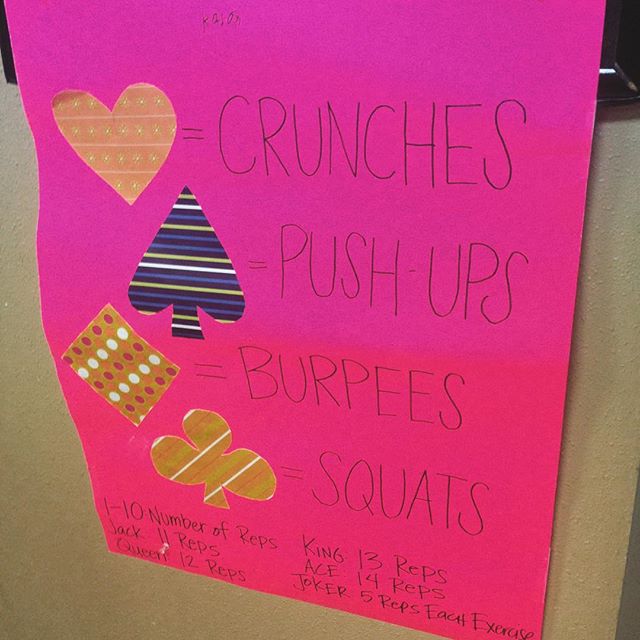 = CRUNCHES
= PUSH-UPS
= BURPEES
= SQUATS
1-10 Number of Reps
Jack 11 Reps
Queen 12 Reps
KING 13 Reps
ACE 14 Reps
JOKER 5 Reps Each Exercise